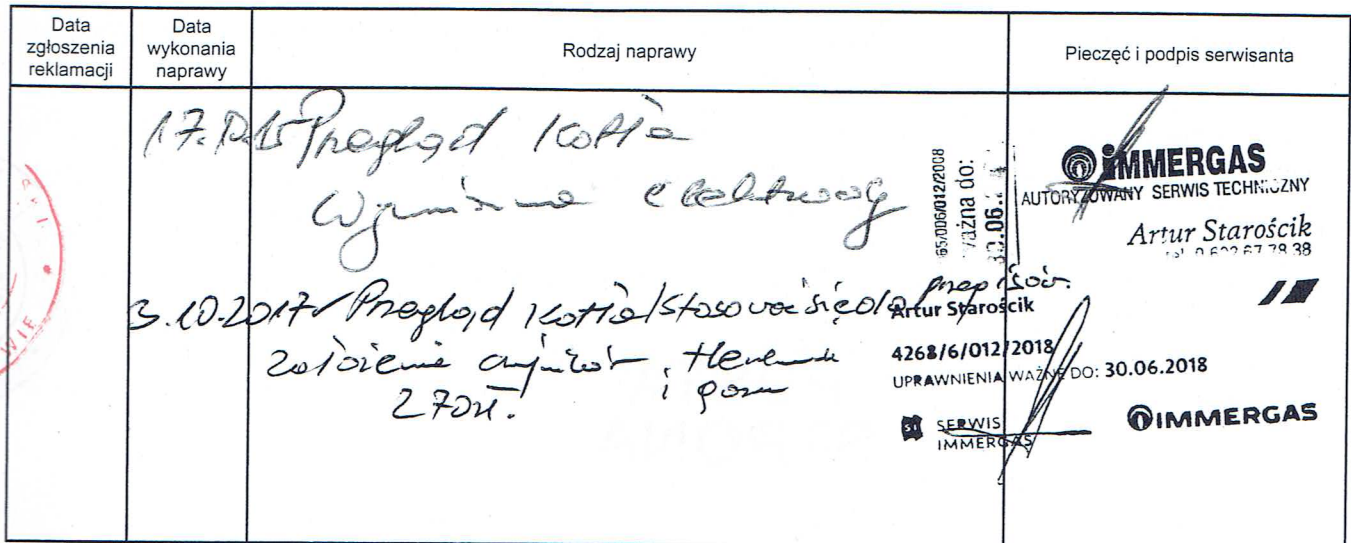 Data zgłoszenia reklamacji
Data wykonania naprawy
Rodzaj naprawy
Pieczęć i podpis serwisanta
17.10.15 Przegląd Kotła
Wymiana elektrody
65/006/012/2008
ważna do:
30.06.
IMMERGAS
AUTORYZOWANY SERWIS TECHNICZNY
Artur Starościk
tel. 0 602 67 78 38
3.10.2017 Przegląd Kotła/Stosować się do przepisów.
założenie czujników, tlenku
270zł. i gazu
Artur Starościk
4268/6/012/2018
UPRAWNIENIA WAŻNE DO: 30.06.2018
SI SERWIS
IMMERGAS
IMMERGAS
WIE